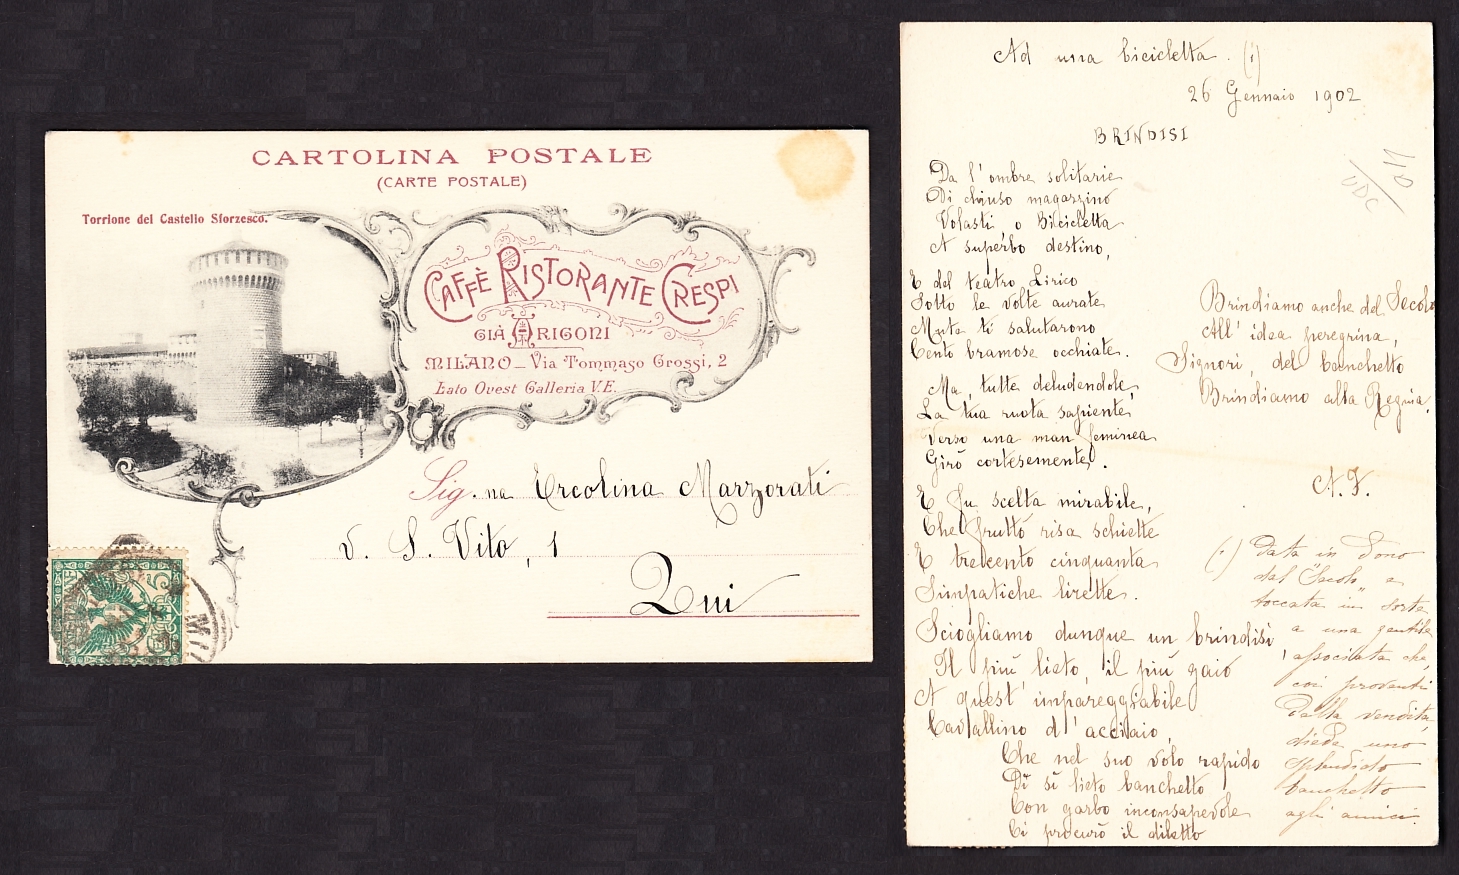 CARTOLINA POSTALE
(CARTE POSTALE)
Torrione del Castello Sforzesco.
CAFFÈ RISTORANTE CRESPI
GIÀ ARIGONI
MILANO - Via Tommaso Grossi, 2
Lato Ovest Galleria V.E.
Sig.na Ercolina Marzorati
v. S. Vito, 1
Qui
Ad una bicicletta. (1)
26 Gennaio 1902
BRINDISI
Da l'ombre solitarie
Di chiuso magazzino
Volasti o Bicicletta
A superbo destino,
E del teatro Lirico
Sotto le volte aurate
Muta ti salutarono
Cento bramose occhiate.
Ma, tutte deludendole,
La tua ruota sapiente,
Verso una man feminea
Girò cortesemente.
E fu scelta mirabile,
Che fruttò risa schiette
E trecento cinquanta
Simpatiche lirette.
Sciogliamo dunque un brindisi,
Il più lieto, il più gaio
A quest'impareggiabile
Cavallino d'acciaio,
Che nel suo volo rapido
Di sì lieto banchetto
Con garbo inconsapevole
Ci procurò il diletto
Brindiamo anche del Secolo
All'idea peregrina,
Signori, del banchetto
Brindiamo alla Regina.
A. F.
(1) Data in dono
dal "Secolo" e
toccata in sorte
a una gentile
associata che,
coi proventi
della vendita,
diede uno
splendido
banchetto
agli amici.
40
VDC